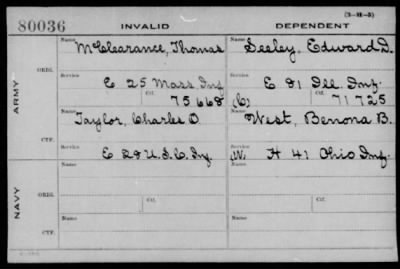 (3-H-5)
80036 INVALID DEPENDENT
Name McClearance, Thomas Name Seeley, Edward D.
ARMY
ORIG. Service E 25 Mass Inf Service E 81 Ill. Inf.
Ctf. 75668 (C) Ctf. 71725
Name Taylor, Charles O. Name West, Benona B.
CTF. Service E 28 U.S.C. Inf. Service (W) H 41 Ohio Inf.
NAVY
Name Name
ORIG. Service Ctf. Service Ctf.
Name Name
CTF.